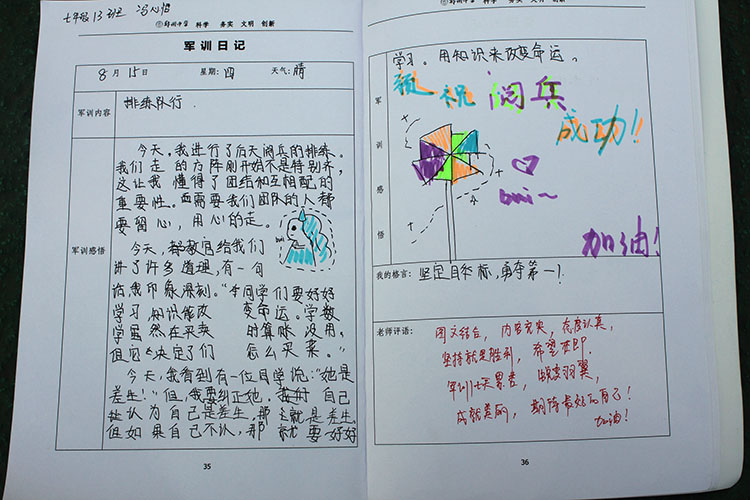 七年级13班 冯心怡
郑州中学 科学 务实 文明 创新
军训日记
8月15日 星期:四 天气:晴
军训内容 排练队行.
军训感悟
今天。我进行了后天阅兵的排练。
我们走的方阵刚开始不是特别齐,
这让我懂得了团结和互相配的
重要性。而需要我们团队的人都
要留心,用心的走。
今天,教官给我们
讲了许多道理,有一句
给我印象深刻。“同学们要好好
学习 知识能改变命运。学数
学虽然在买卖时算账没用,
但它决定了们怎么买菜。”
今天,我看到有一位同学说:“她是
差生!”但,我要纠正她,自己
认为自己是差生,那么就是差生
但如果自己不认,那就要好好
35
郑州中学 科学 务实 文明 创新
学习。用知识来改变命运。
军训感悟
预祝阅兵
成功!!
加油!
我的格言: 坚定目标,勇夺第一!
老师评语: 图文结合,内容充实,态度认真,
坚持就是胜利,希望在即.
军训七天累差,羽翼,
成就美丽,期待最好的自己!
加油!
36